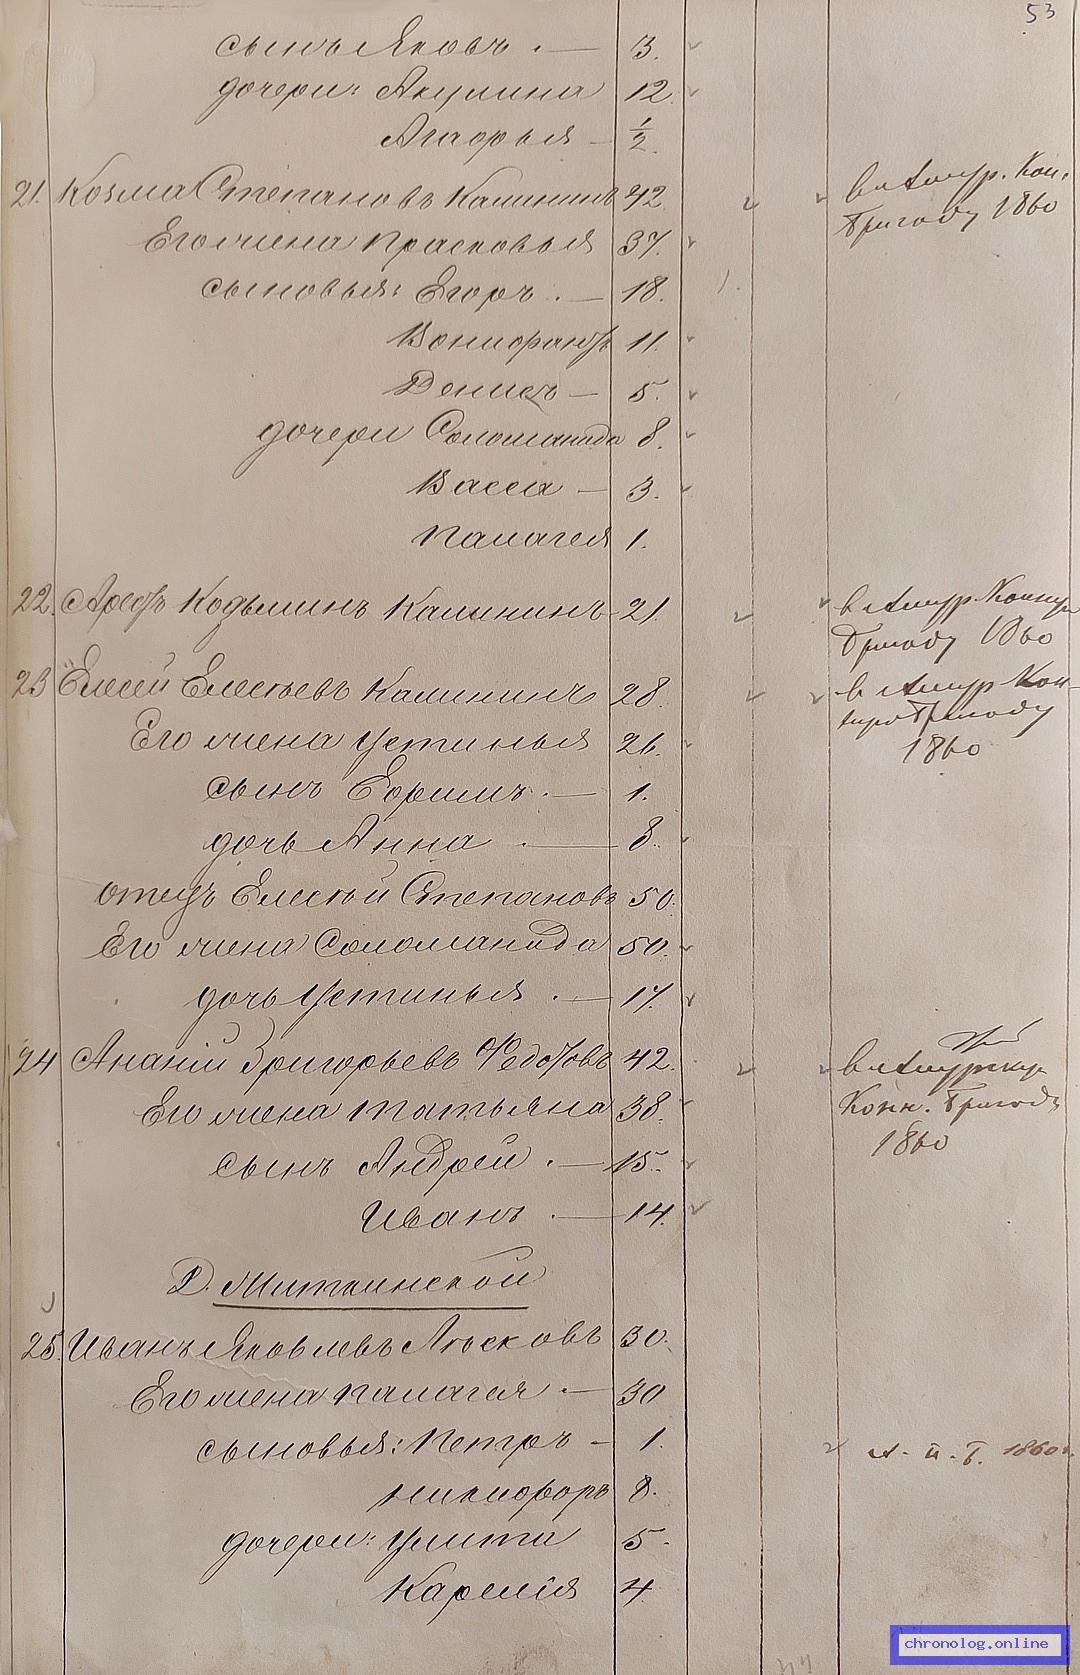 53
сынъ Яковъ . — 3.
дочери: Акулина 12.
Агафья — 1/2.
21. Козма Степановъ Калининъ 42.
Его жена Прасковья 37.
сыновья: Егоръ . — 18.
Вонифатъ 11.
Денисъ — 5.
дочери Соломанида 8.
Васса — 3.
Палагея 1.
въ Амур. Кон.
бригаду 1860
22. Арефъ Козьминъ Калининъ 21.
въ Амур. Конную
бригаду 1860
23 Елисей Елесеевъ Калининъ 28.
Его жена Устинья 26.
сынъ Ефимъ . — 1.
дочь Анна . — 8.
отецъ Елесей Степановъ 50.
Его жена Соломанида 50.
дочь Устинья . — 17.
въ Амур Кон-
ную бригаду
1860
24 Ананiй Григорьевъ Федотовъ 42.
Его жена Татьяна 38.
сынъ Андрей . — 15.
Иванъ . — 14.
въ Амурскую
Конн. бригаду
1860
Д. Миткинской
25. Иванъ Яковлевъ 30.
Его жена Палагея . — 30
сыновья: Петръ — 1.
Никифоръ 8.
дочери: Улита 5.
Карелiя 4.
А. п. б. 1860 г.
chronolog.online